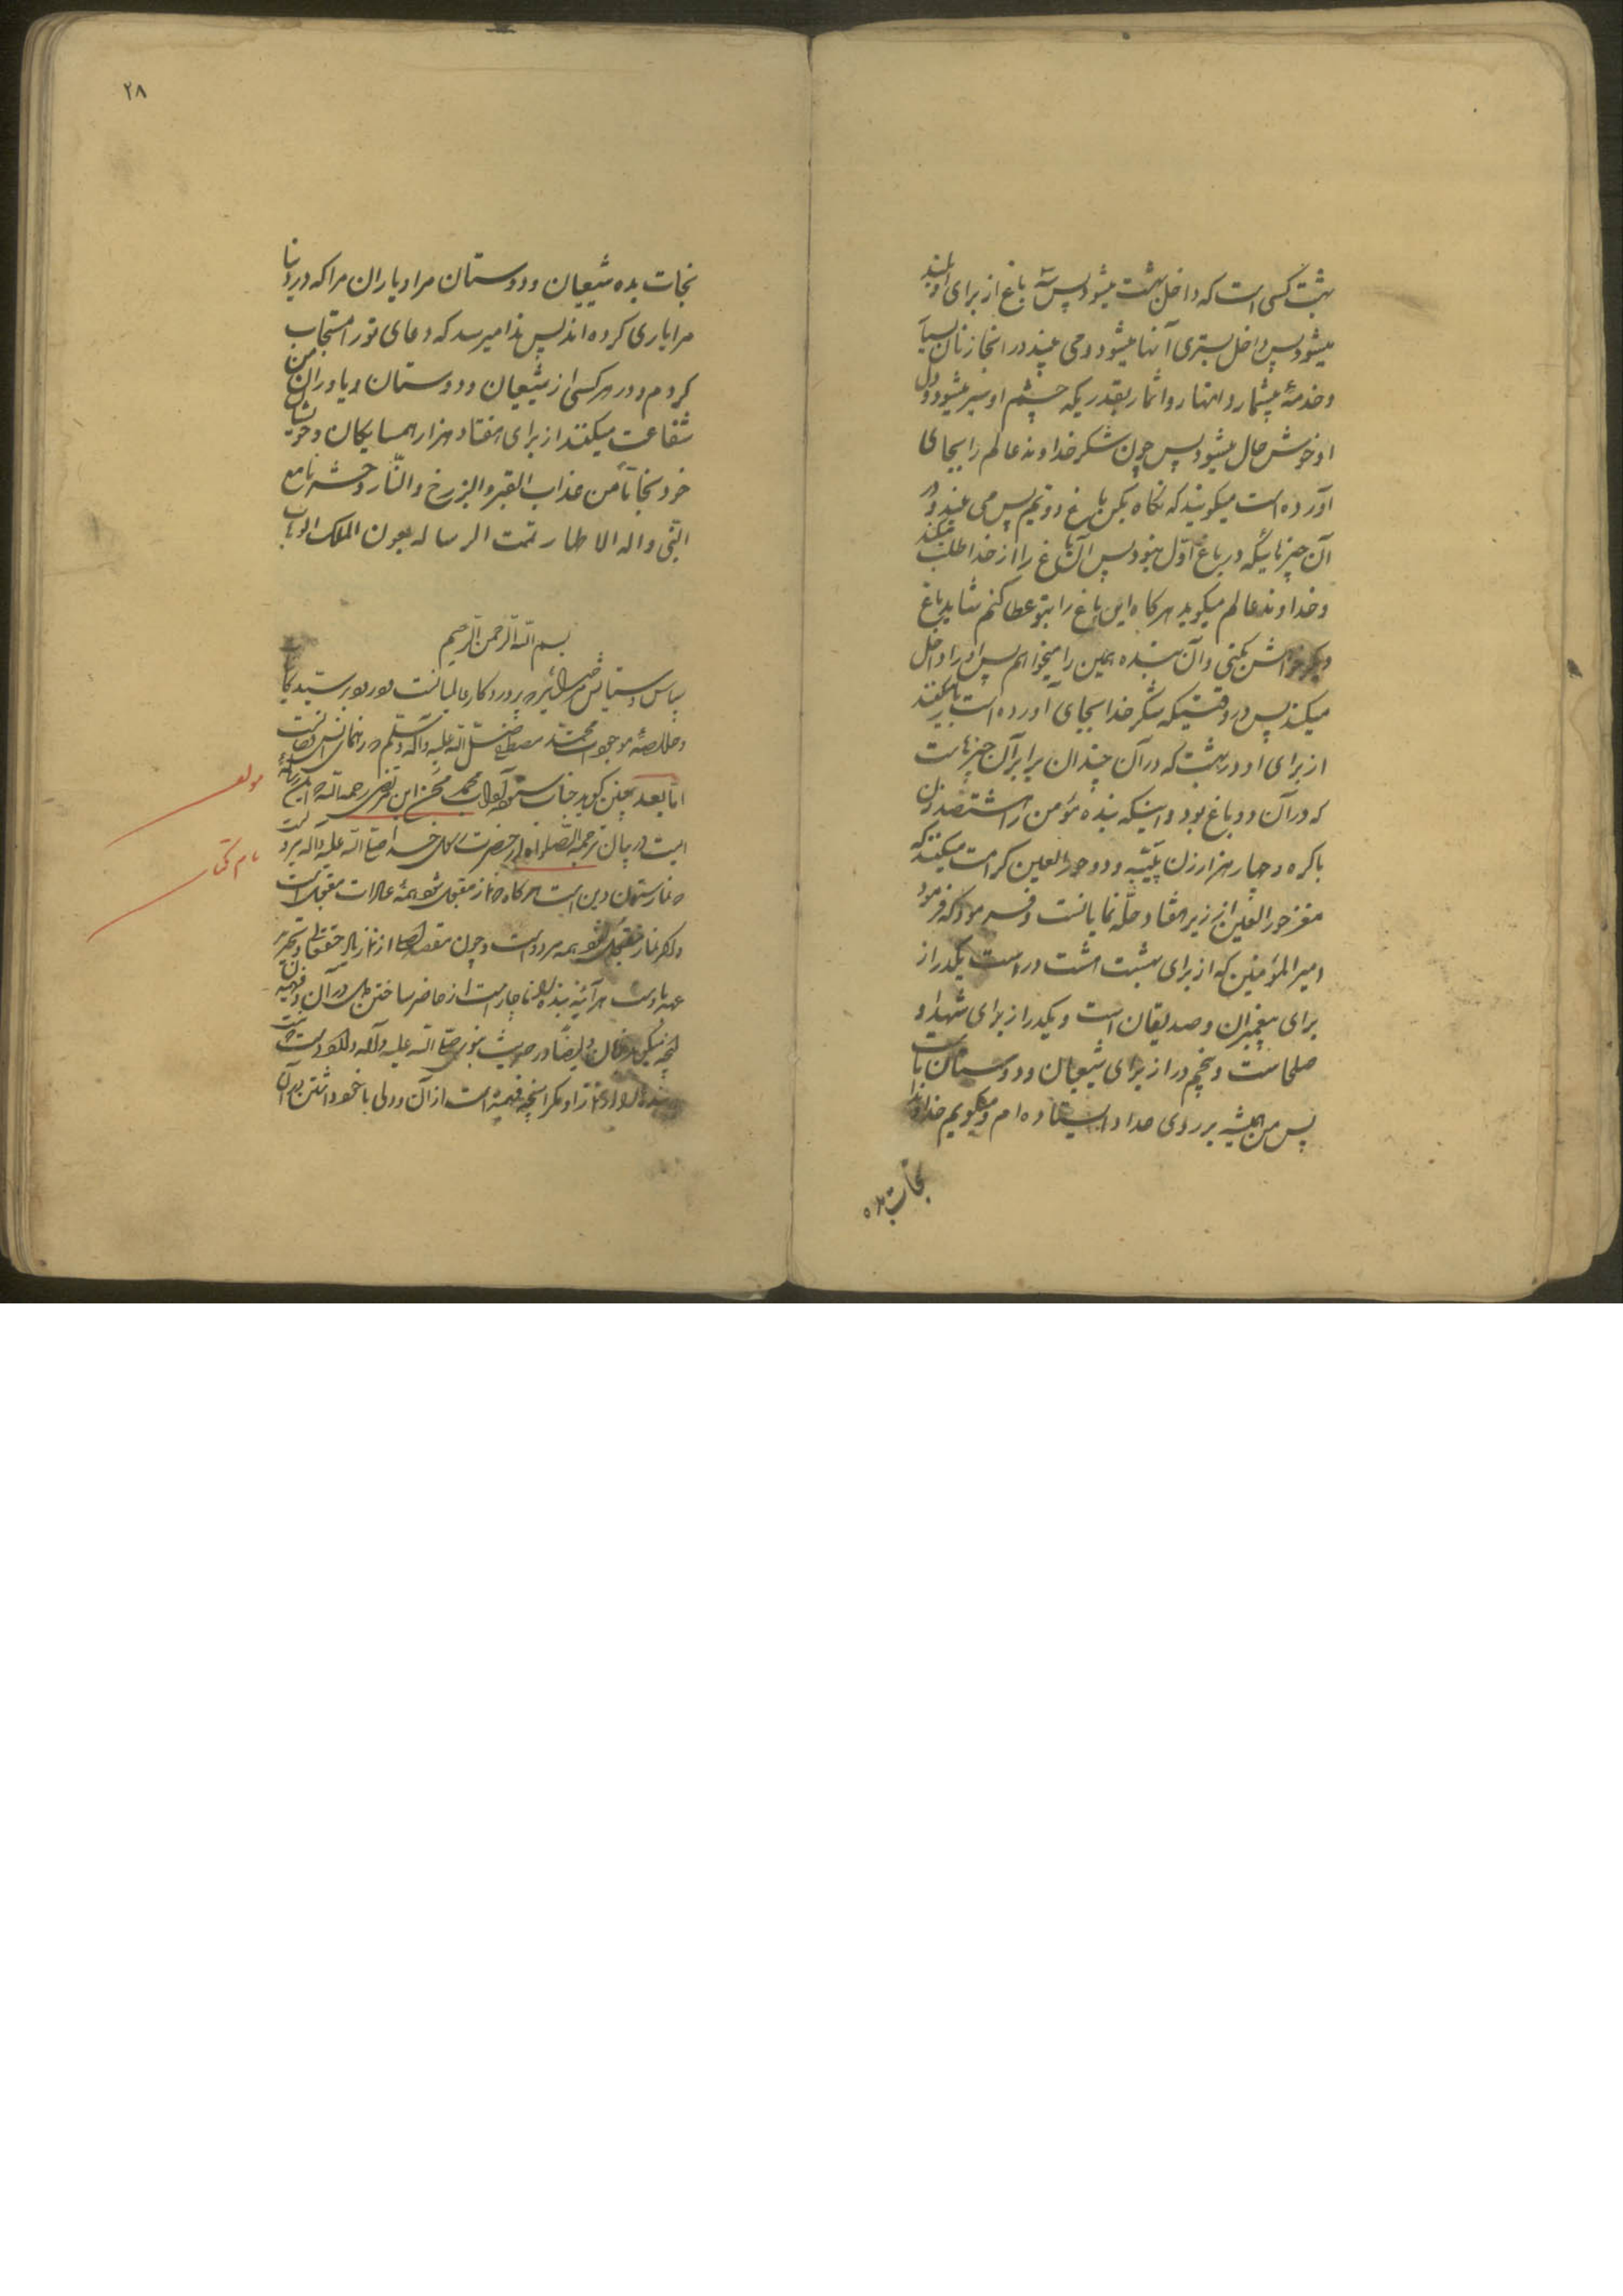 بهشت کسی است که داخل بهشت میشود پس سه باغ از برای او بلند
میشود پس داخل بستری آنها میشود و می بیند در انجا زنان بسیار
و خدمهٔ بیشمار و انهار و اثمار بقدریکه چشم او سیر میشود و دل
او خوش حال میشود پس چون شکر خداوند عالم را بجای
آورده است میکویند که نکاه بکن باغ دویم پس می بیند در
آن چیزهائیکه در باغ اوّل نبود پس آن باغ را از خدا طلب میکند
و خداوند عالم میکوید هرکاه این باغ را بتو عطا کنم شاید باغ
دیکر خواهش بکنی و آن بنده همین را میخواهم پس او را داخل
میکنند پس در وقتیکه شکر خدا بجای آورده است باز میکنند
از برای او در بهشت که در آن چندان برابر آن چیزهاست
که در آن دو باغ بود و اینکه بنده مؤمن را هشتصد زن
باکره و چهار هزار زن ثیّبه و دو حور العین کرامت میکنند که
مغز حور العین از زیر هفتاد حلّه نمایانست و فرمود که فرمود
امیر المؤمنین که از برای بهشت هشت در است یکدر از
برای پیغمبران و صدیقان است و یکدر از برای شهدا و
صلحاست و پنجم در از برای شیعیان و دوستان ماست
پس من همیشه بر روی صراط ایستاده ام و میکویم خداوندا
نجات بده
۲۸
نجات بده شیعیان و دوستان مرا و یاران مرا که در دنیا
مرا یاری کرده اند پس ندا میرسد که دعای تو را مستجاب
کردم و در هر کسی از شیعیان و دوستان و یاوران من
شفاعت میکنند از برای هفتاد هزار همسایکان و خویشان
خود نجاتاً من عذاب القبر والبرزخ والنّار وحشرنا مع
النّبی واله الاطهار تمت الرساله بعون الملک الوهّاب
بسم الله الرحمن الرحیم
سپاس و ستایش پروردکار عالمیانست
و خلاصهٔ موجودات محمّد مصطفی صلّی الله علیه و آله و سلّم
امّا بعد چنین کوید جناب محمد محسن ابن مرتضی رحمه الله که این رسالهٔ
ایست در بیان ترجمة الصلواة از حضرت رسول خدا صلّی الله علیه و آله مرویست
که نماز ستون دین است هرکاه نماز مقبول شود همهٔ عبادات مقبول است
و اکر نماز مقبول نشود همه مردود است و چون مقصد اصلی از نماز یاد حقتعالی و تجدید
عهد باوست هر آئینه بنده را ناچار است از حاضر ساختن دل در آن و فهمیدن
آنچه میکوید در آن و ایضاً در حدیث نبوی صلّی الله علیه و آله وارد است که نیست
بنده را از نماز او مکر آنچه فهمیده است از آن و دلی با خود داشتن در آن
مولف
نام کتاب